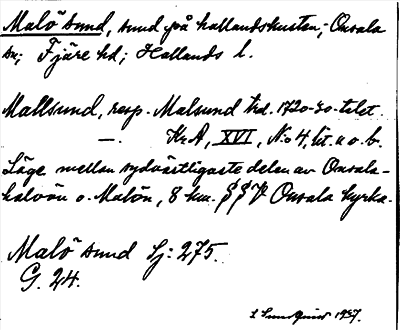 Malö sund, sund på hallandskusten; Onsala
sn; Fjäre hd; Hallands l.
Mallsund, resp. Malsund hd. 1720-30-talet
—"— KrA, XVI, No 4, lit. a o. b.
Läge mellan sydvästligaste delen av Onsala-
halvön o. Malön, 8 km. SSV Onsala kyrka.
Malö sund Sj: 275.
G. 24.
Lundquist 1937.